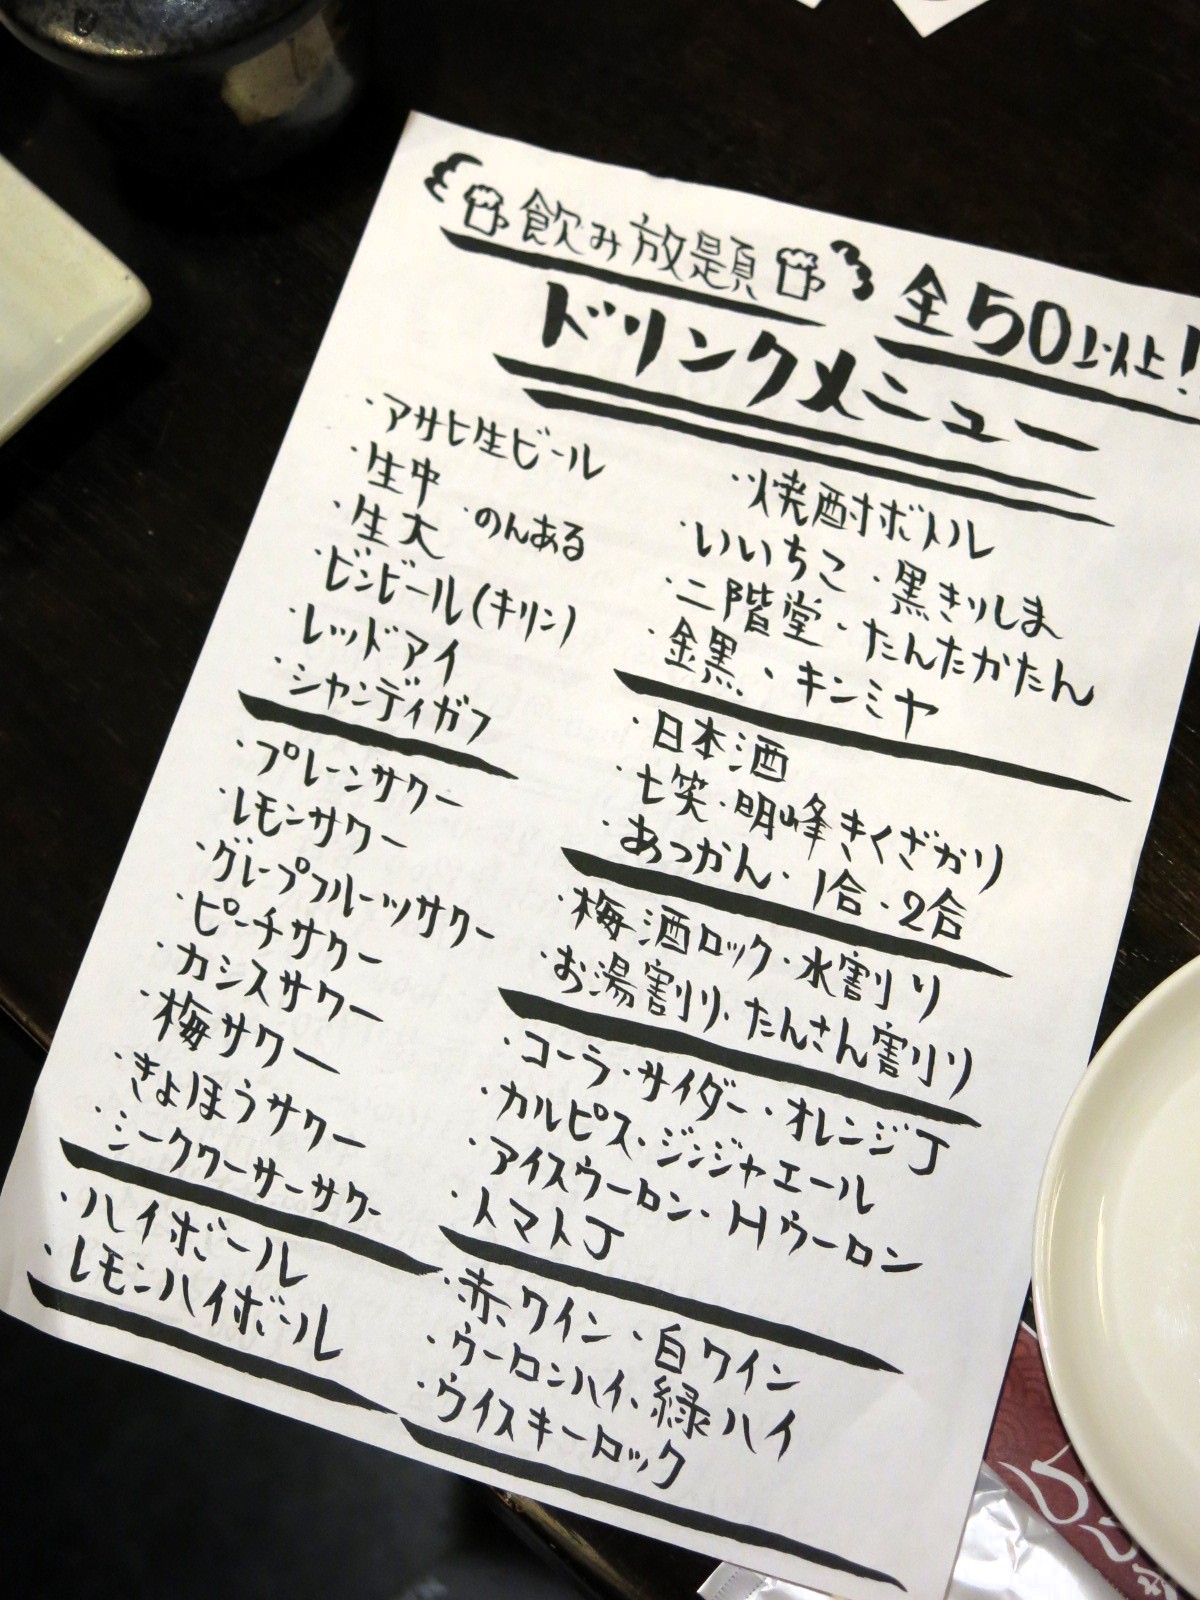 飲み放題
全50以上!
ドリンクメニュー
・アサヒ生ビール
・生中
・生大 ・のんある
・ビンビール(キリン)
・レッドアイ
・シャンディガフ
・プレーンサワー
・レモンサワー
・グレープフルーツサワー
・ピーチサワー
・カシスサワー
・梅サワー
・きょほうサワー
・シークワーサーサワー
・ハイボール
・レモンハイボール
・焼酎ボトル
・いいちこ・黒きりしま
・二階堂・たんたかたん
・金黒・キンミヤ
・日本酒
・七笑・明峰きくざかり
・あつかん・1合・2合
・梅酒ロック・水割り
・お湯割り・たんさん割り
・コーラ・サイダー・オレンジJ
・カルピス・ジンジャエール
・アイスウーロン・Hウーロン
・トマトJ
・赤ワイン・白ワイン
・ウーロンハイ・緑ハイ
・ウイスキーロック